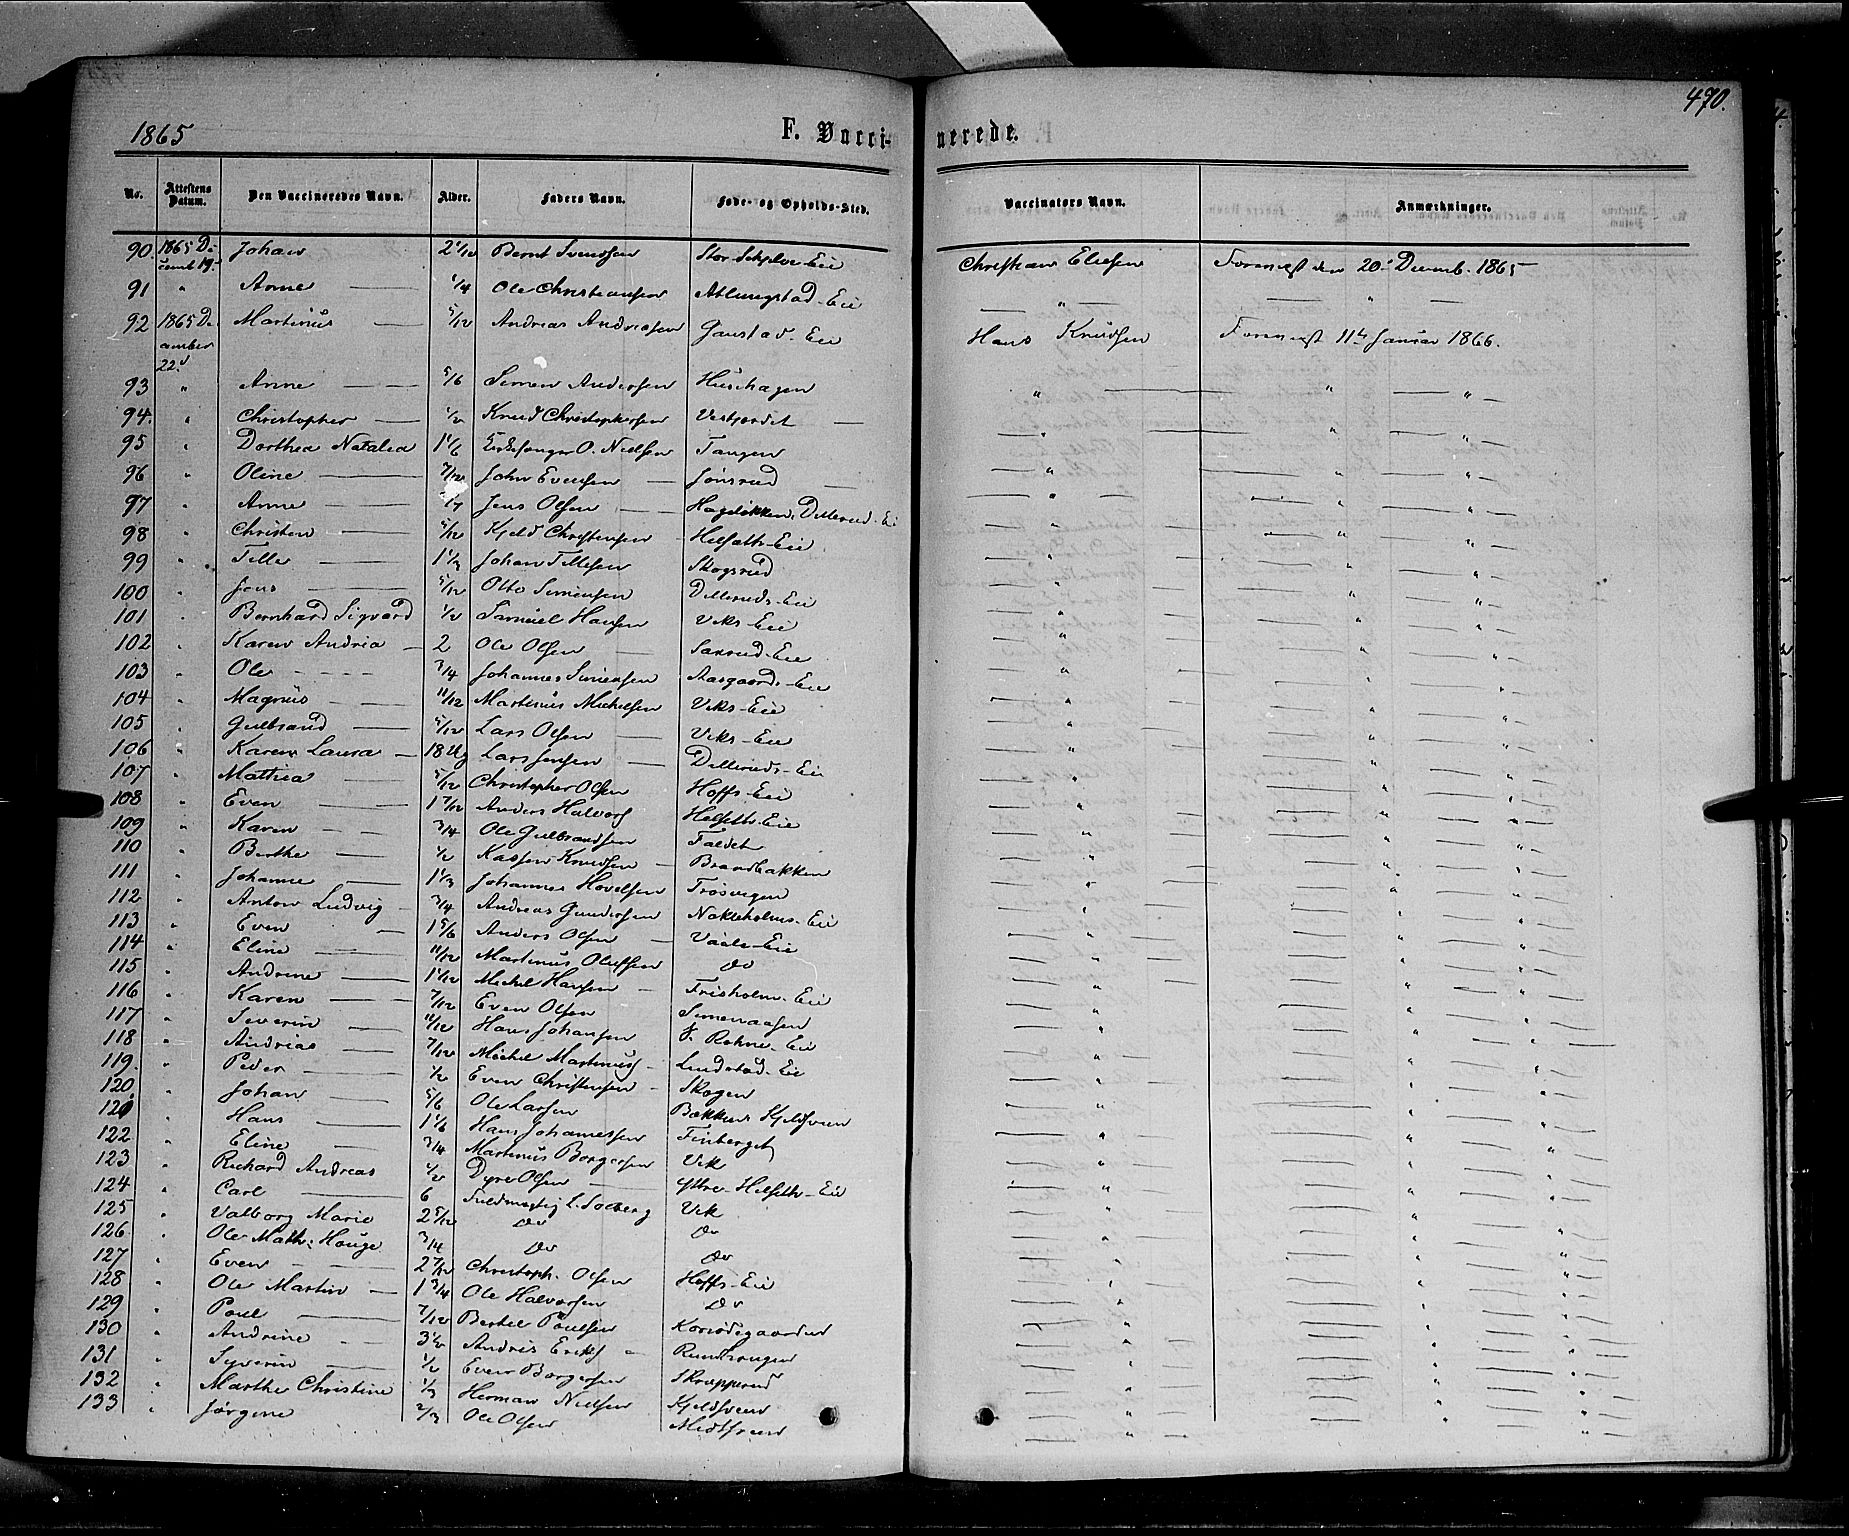 470.
1865
F. Vaccinerede.
No. Attestens Datum. Den Vaccineredes Navn. Alder. Faders Navn. Føde- og Opholds-Sted. Vaccinators Navn. Anmærkninger.
90. 1865 December 19. Johan 2 1/12 Bernt Svendsen Stor-Schjelve-Eie Christian Eliesen Forevist den 20 Decemb. 1865
91 " Anne — 1/4 Ole Christiansen Atlungstad-Eie — " — — " —
92 1865 December 22. Martinus — 5/12 Andreas Andreasen Gaustad-Eie Hans Knudsen Forevist 11te Januar 1866.
93 " Anne — — 5/6 Simen Andersen Huushagen " — " — " —
94. " Christopher — 1/2 Knud Christophersen Vestjordet — " "
95 " Dorthea Natalia 1 1/6 Kirkesanger O. Nielsen Tangen
96 " Oline — 7/12 John Evensen — Jønsrud —
97 " Anne — Jens Olsen — Hageløkken, Dillerud-Ei
98 " Christen — 5/12 Kjeld Christensen Helseth-Eie
99 " Tille — 1 1/2 Johan Tillesen Skogsrud
100 " Jens — 5/12 Otto Simensen Dilleruds-Eie
101 " Bernhard Sigvard 1/2 Samuel Hansen Veks-Eie
102 " Karen Andria — 2 Ole Olsen — Saxrud-Eie
103 " Ole - - - - 3/4 Johannes Simensen Aasgaards-Eie
104 " Magnus - — 11/12 Martinus Michelsen Veks-Eie
105 " Gulbrand — 5/12 Lars Olsen — Veks-Eie
106 " Karen Laura — 18 Ug Lars Jensen — Dilleruds-Eie
107 " Mathea — 5/12 Christopher Olsen Hoffs-Eie
108 " Even — 1 7/12 Anders Halvors Helseth-Eie
109 " Karen — - 3/4 Ole Gulbrandsen Faldet
110 " Berthe — 1/2 Kassen Knudsen — Brandbakken
111 " Johanne — 1 1/3 Johannes Hovelsen Trosvigen
112 " Anton Ludvig - 3/4 Andreas Gundersen Nakleholms-Eie
113 " Even - 1 5/6 Anders Olsen — Vaale-Eie
114 " Eline — 11/12 Martinus Olufsen Do
115 " Andrine — 1 1/12 Michel Hansen - Frisholm-Eie
116 " Karen — 7/12 Even Olsen Simenaasen
117 " Severin — 11/12 Hans Johansen Y. Rohne-Eie
118 " Andreas — 7/12 Michel Martinus - Lundstad-Eie
119. " Peder — 1/2 Even Christensen - Skogen
120 " Johan — 5/6 Ole Larsen Bækkens Kjeldsveen
121 " Hans — 1 1/6 Hans Johannessen Finberget
122 " Eline — 3/4 Martinus Borgersen Vek
123 " Richard Andreas 1/2 Dyre Olsen — Ythre-Helseth-Eie
124 " Carl — 6 Fuldmægtig L. Solberg Vek
125 " Valborg Marie 2 5/12 Do Do
126 " Ole Math. Houge 3/4 Do Do
127 " Even — 2 7/12 Christoph. Olsen Hoffs-Eie
128 " Ole Martin — 1 3/4 Ole Halvorsen Do
129 " Poul — 7/12 Bertel Poulsen Korsødegaarden
130 " Andrine - - 3 1/2 Andris Eriks - Rundhaugen
131 " Syverin — 1/2 Even Borgersen Skrepperud
132 " Marthe Christine 1/3 Herman Nielsen Kjeldsveen
133 " Jørgine 2/3 Ole Olsen Midtsveen